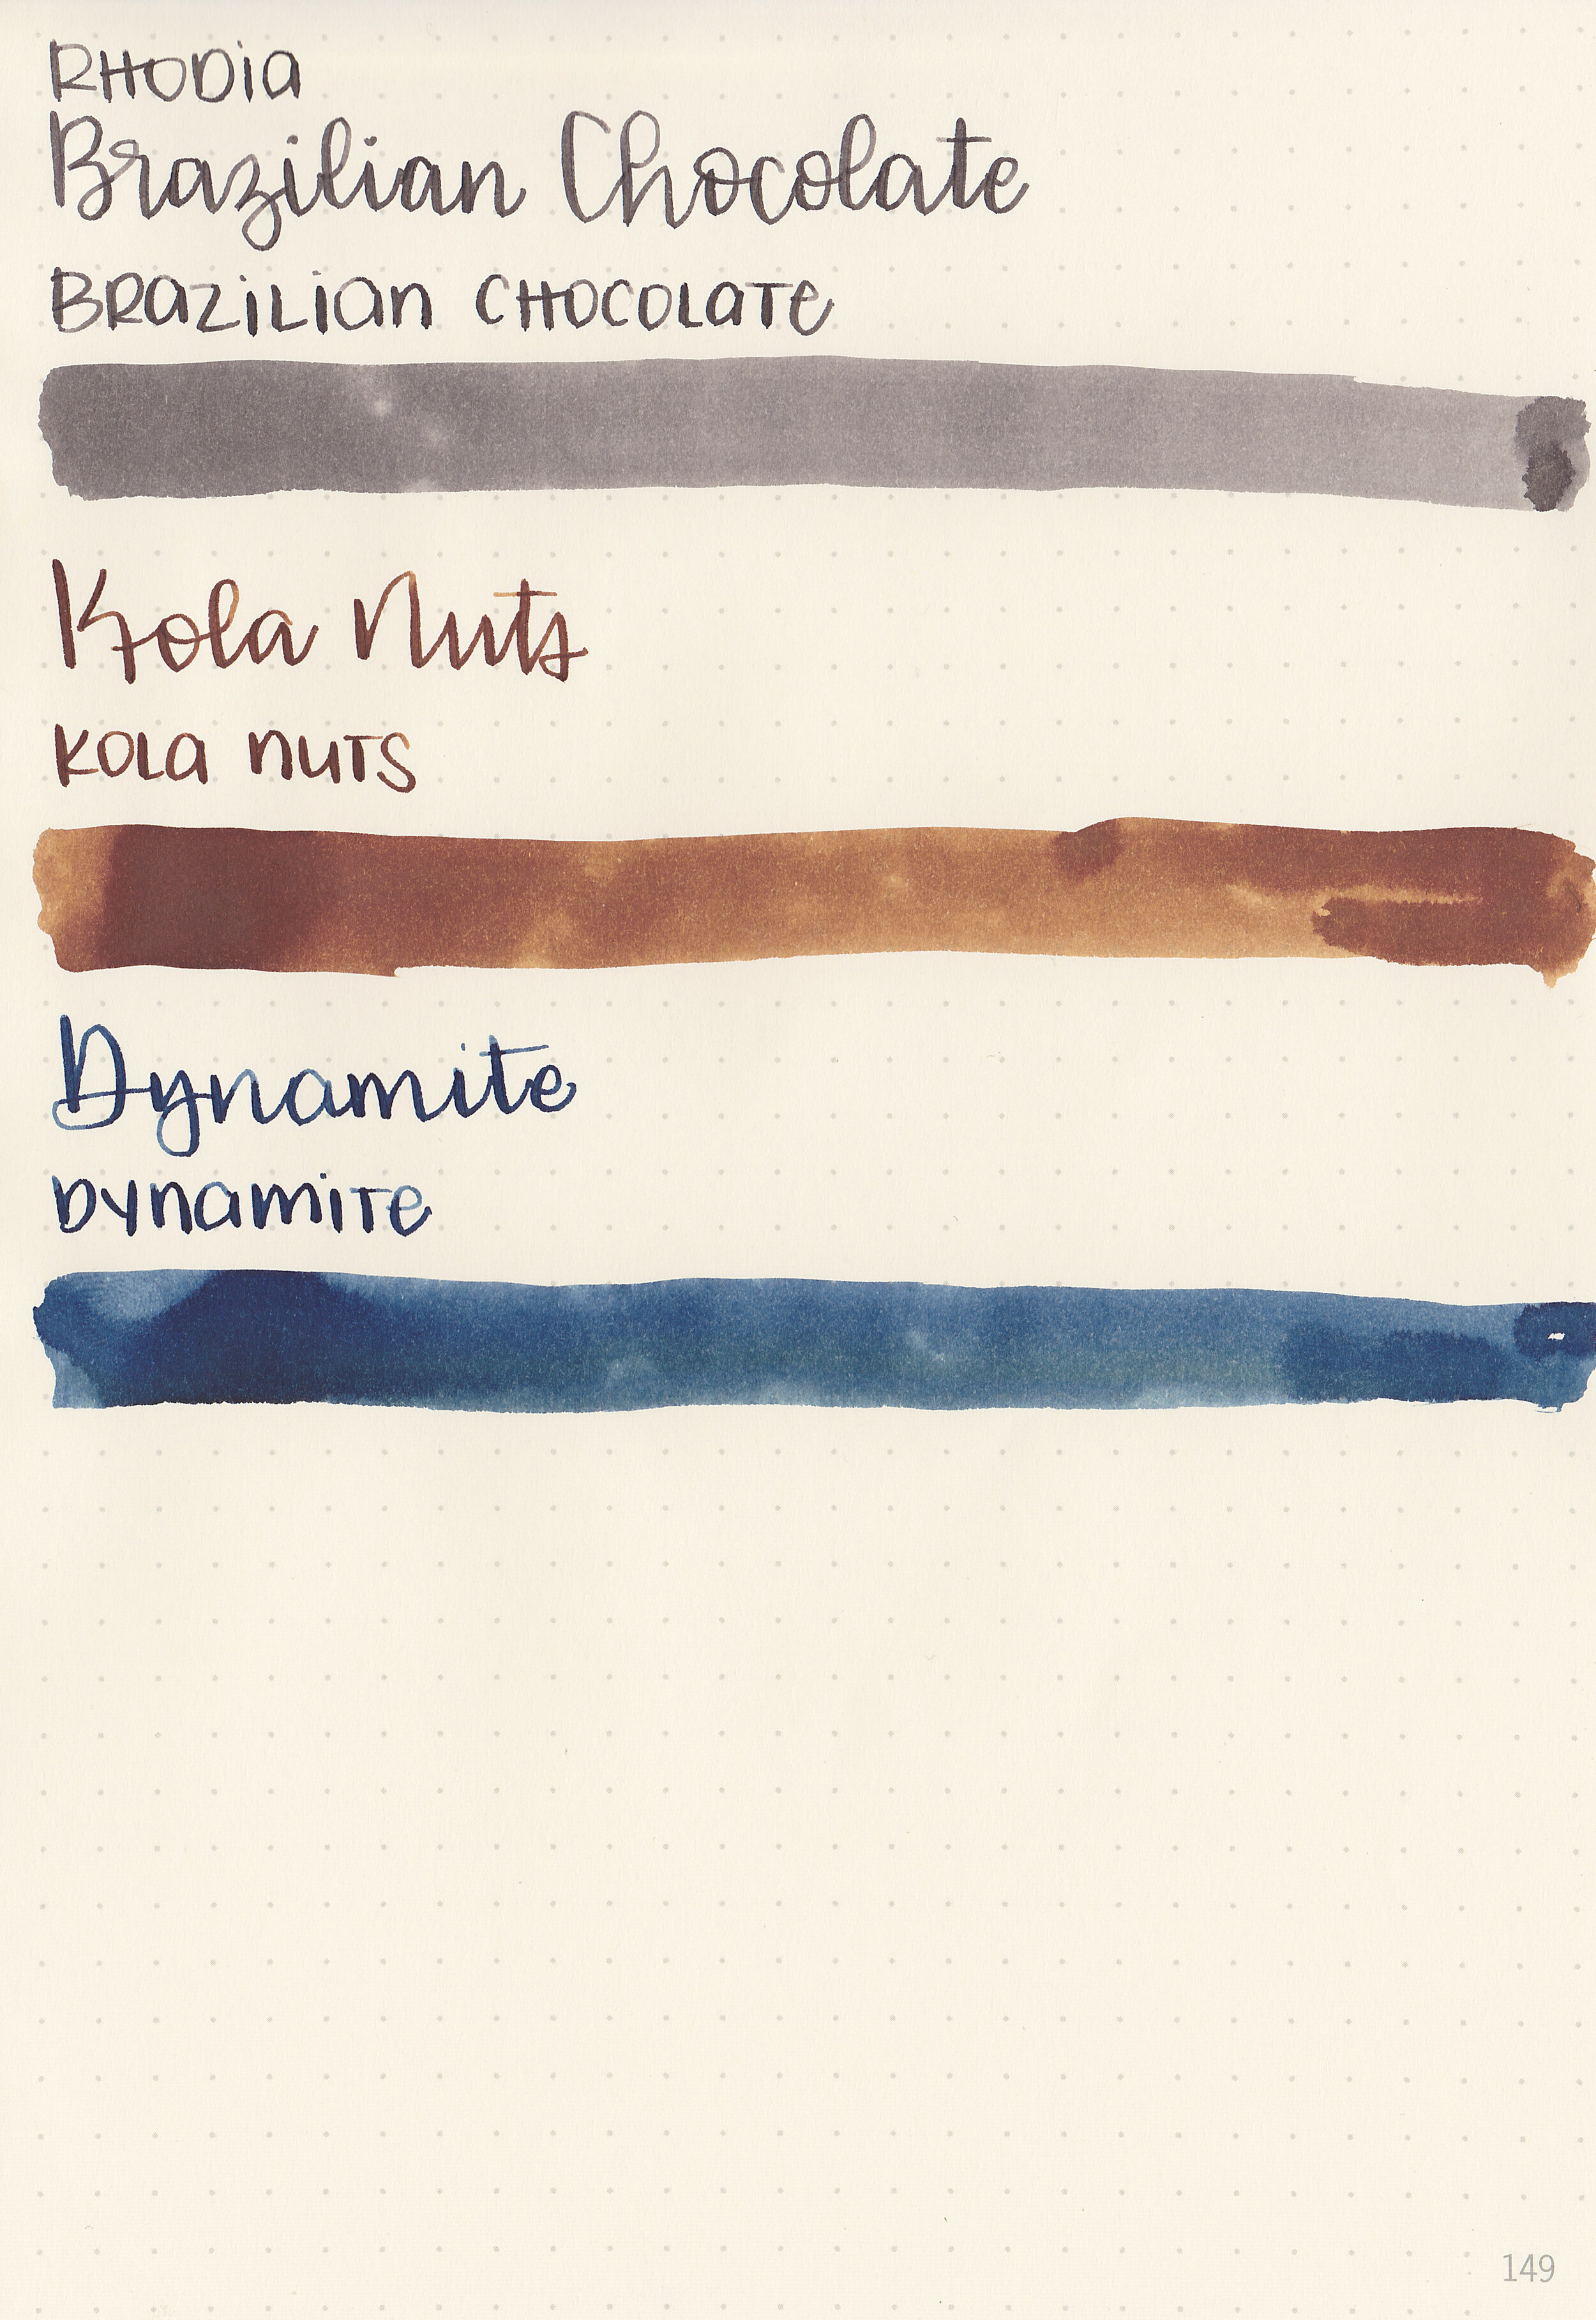 RHODia
Brazilian Chocolate
BRaZiLian CHOCOLaTe
Kola Nuts
KOLa nuTS
Dynamite
DYnamiTe
149